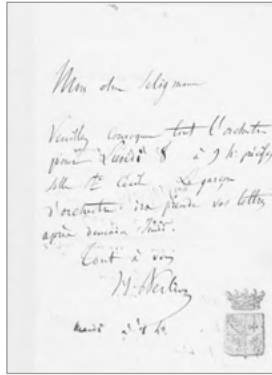 Mon cher Seligmann
Veuillez convoquer tout l'orchestre
pour Lundi 8 à 9 h. précises
salle Ste Cécile. Le garçon
d'orchestre ira prendre vos lettres
après demain Jeudi.
Tout à vous
H. Berlioz
mardi